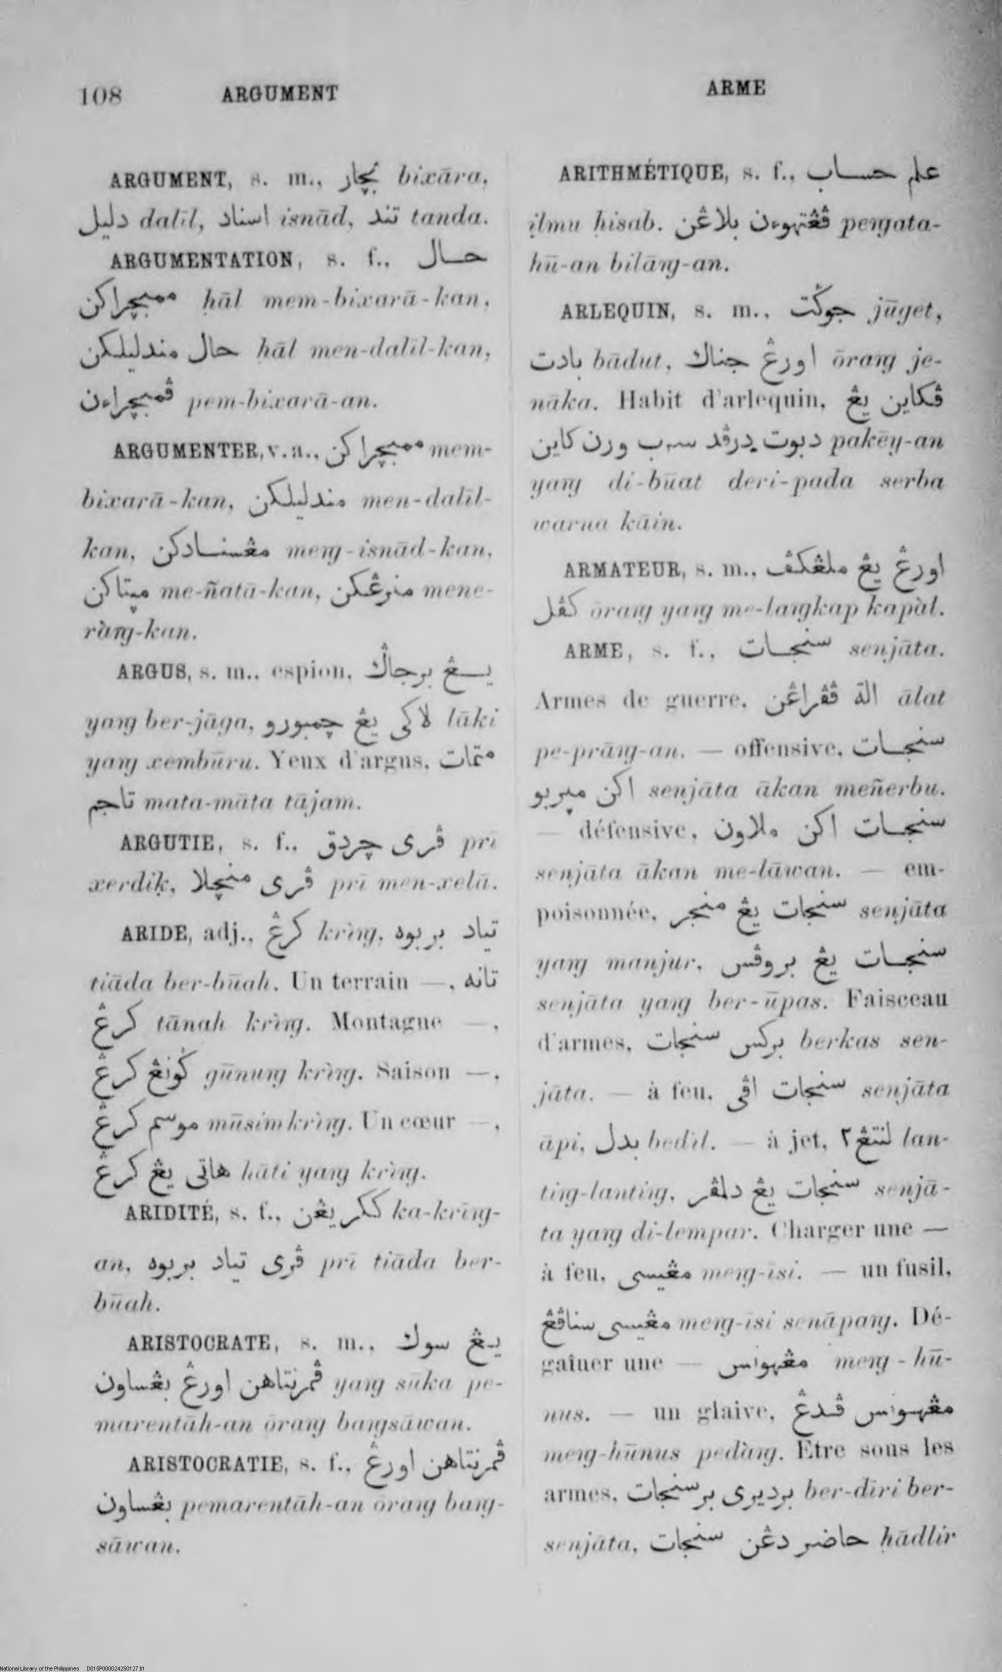 108 ARGUMENT ARME
ARGUMENT, s. m., بچار bixāra,
دليل dalīl, اسناد isnād, تند tanda.
ARGUMENTATION, s. f., حال
ممبچراكن hāl mem-bixarā-kan,
حال مندليلكن hāl men-dalīl-kan,
ڤمبچراءن pem-bixarā-an.
ARGUMENTER, v. a., ممبچراكن mem-
bixarā-kan, مندليلكن men-dalīl-
kan, مڠسنادكن meng-isnād-kan,
مپتاكن me-ñatā-kan, منرڠكن mene-
ràng-kan.
ARGUS, s. m., espion, يڠ برجاݢ
yang ber-jāga, لاكى يڠ چمبورو lāki
yang xembūru. Yeux d'argus, متمات
تاجم mata-māta tājam.
ARGUTIE, s. f., ڤرى چردق prī
xerdiḳ, ڤرى منچلا prī men-xelā.
ARIDE, adj., كرڠ krìng, تياد بربوه
tiāda ber-būah. Un terrain —, تانه
كرڠ tānah krìng. Montagne —,
ݢونڠ كرڠ gūnung krìng. Saison —,
موسم كرڠ mūsim krìng. Un cœur —,
هاتى يڠ كرڠ hāti yang krìng.
ARIDITÉ, s. f., ككريڠن ka-krīng-
an, ڤرى تياد بربوه prī tiāda ber-
būah.
ARISTOCRATE, s. m., يڠ سوك
ڤمرنتاهن اورڠ بڠساون yang sūka pe-
marentāh-an ōrang bangsāwan.
ARISTOCRATIE, s. f., ڤمرنتاهن اورڠ
بڠساون pemarentāh-an ōrang bang-
sāwan.
ARITHMÉTIQUE, s. f., علم حساب
ilmu ḥisab. ڤڠتهوءن بلاڠن pengata-
hū-an bilāng-an.
ARLEQUIN, s. m., جوݢت jūget,
بادت bādut, اورڠ جناك ōrang je-
nāka. Habit d'arlequin, ڤكاين يڠ
دبوت درڤد سرب ورن كاين pakēy-an
yang di-būat deri-pada serba
warna kāin.
ARMATEUR, s. m., اورڠ يڠ ملڠكڤ
كڤل ōrang yang me-langkap kapàl.
ARME, s. f., سنجات senjāta.
Armes de guerre, الة ڤڤراڠن ālat
pe-prāng-an. — offensive, سنجات
اكن مپربو senjāta ākan meñerbu.
— défensive, سنجات اكن ملاون
senjāta ākan me-lāwan. — em-
poisonnée, سنجات يڠ منجر senjāta
yang manjur, سنجات يڠ بروڤس
senjāta yang ber-ūpas. Faisceau
d'armes, بركس سنجات berkas sen-
jāta. — à feu, سنجات اڤى senjāta
āpi, بدل bedil. — à jet, لنتڠ٢ lan-
ting-lanting, سنجات يڠ دلمڤر senjā-
ta yang di-lempar. Charger une —
à feu, مڠيسى meng-īsi. — un fusil,
مڠيسى سناڤڠ meng-īsi senāpang. Dé-
gaîner une — مڠهونس meng-hū-
nus. — un glaive, مڠهونس ڤدڠ
meng-hūnus pedàng. Etre sous les
armes, برديرى برسنجات ber-dīri ber-
senjāta, حاضر دڠن سنجات ḥādlir
National Library of the Philippines